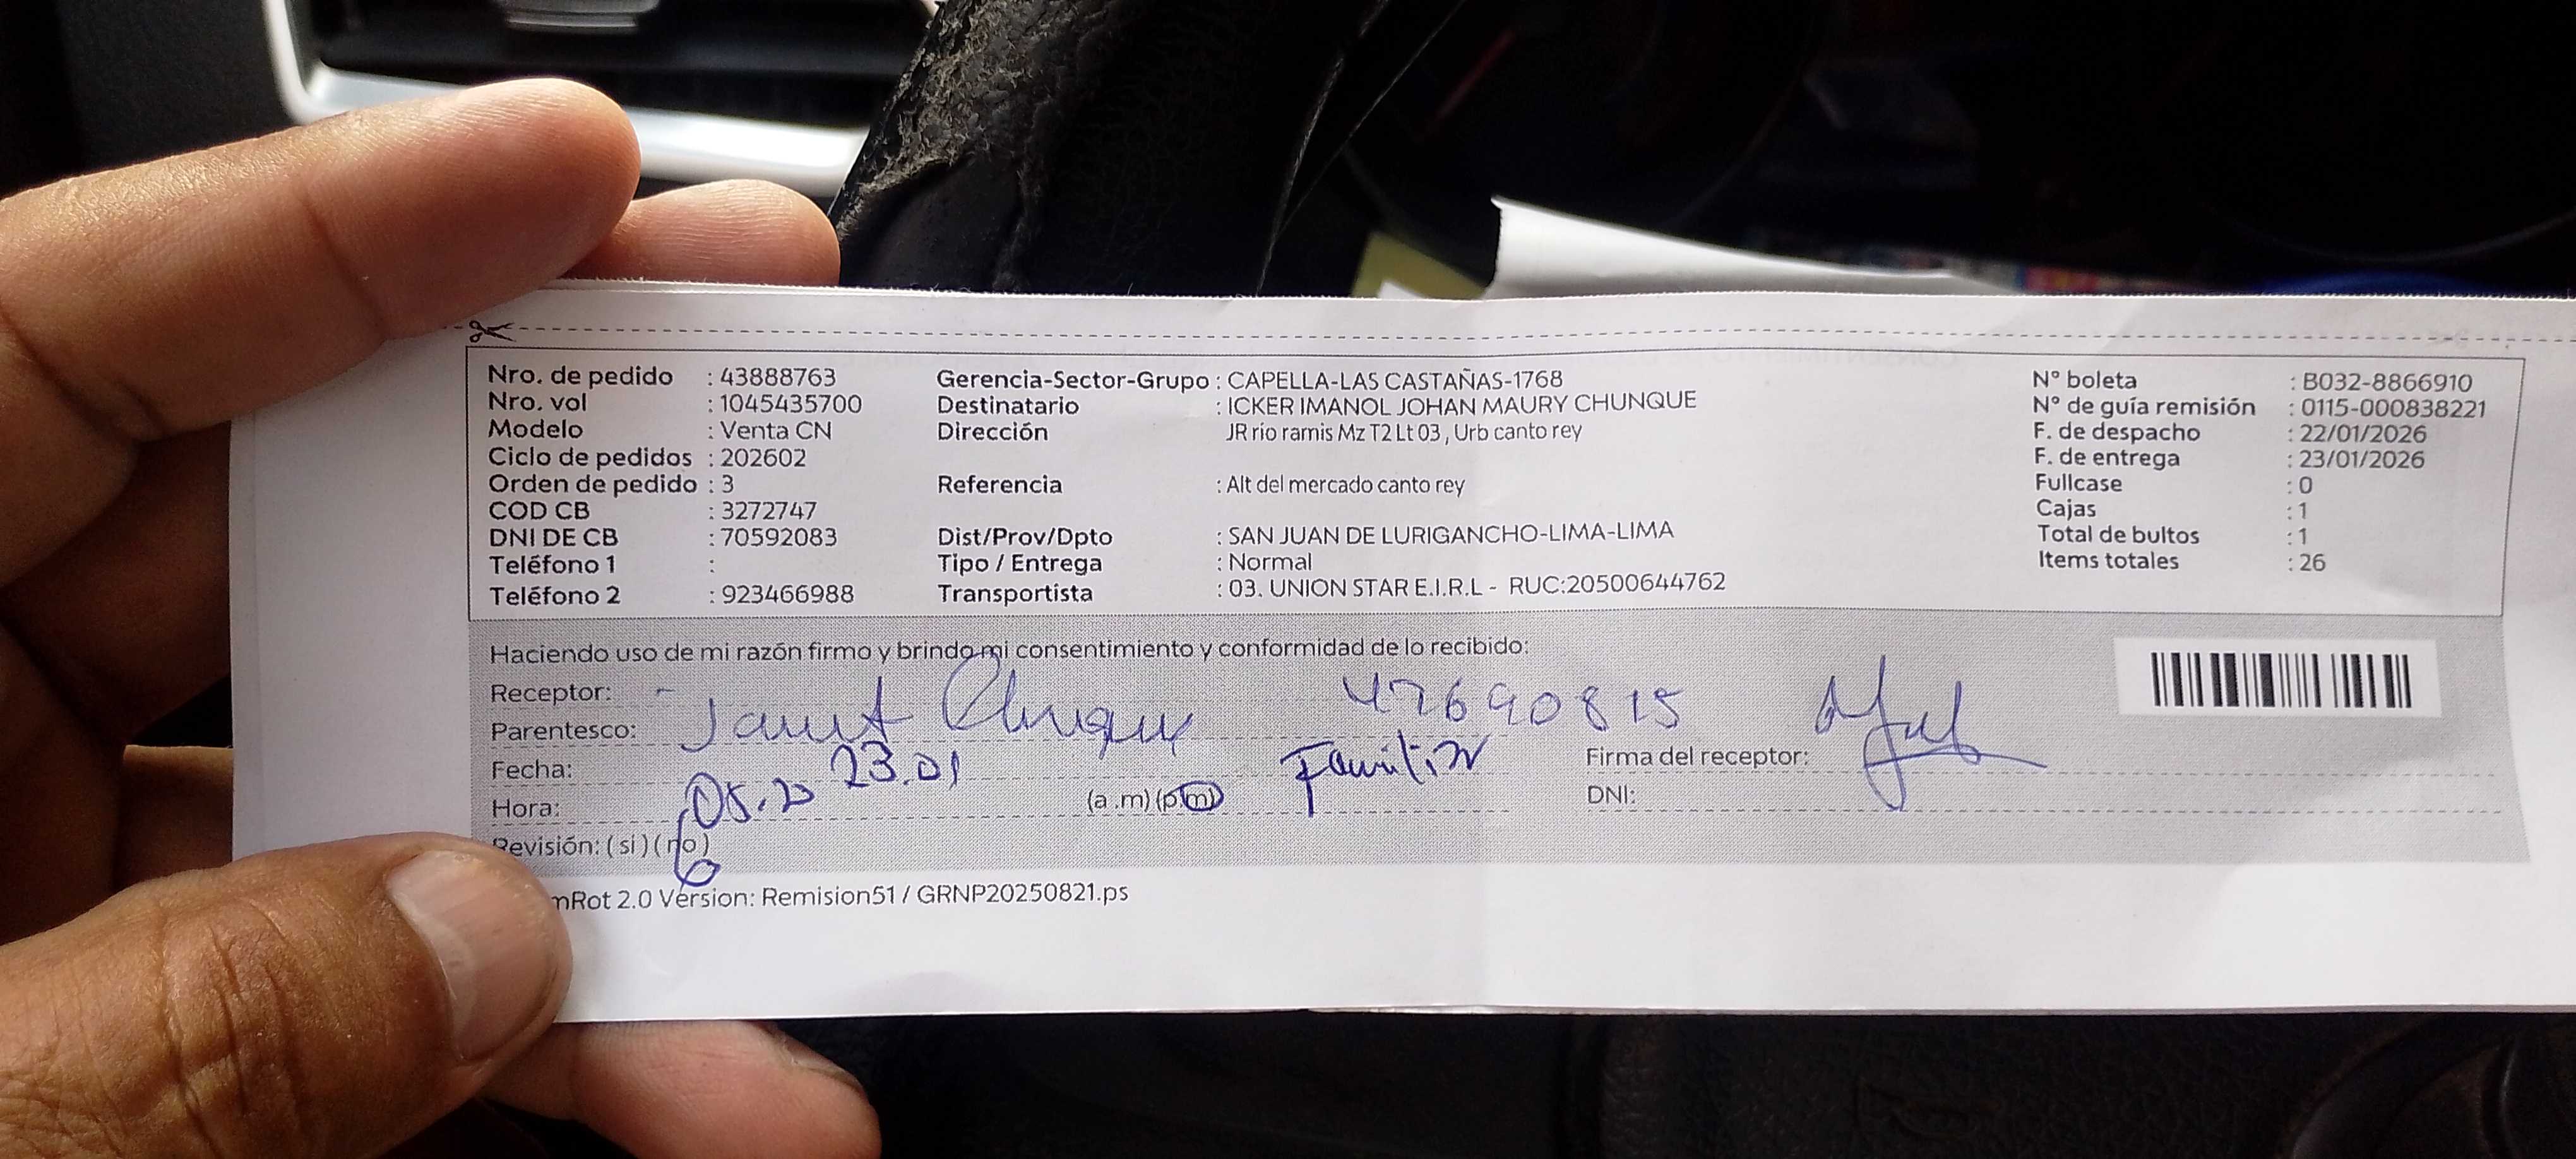 Nro. de pedido : 43888763 Gerencia-Sector-Grupo : CAPELLA-LAS CASTAÑAS-1768 N° boleta : B032-8866910
Nro. vol : 1045435700 Destinatario : ICKER IMANOL JOHAN MAURY CHUNQUE N° de guía remisión : 0115-000838221
Modelo : Venta CN Dirección JR rio ramis Mz T2 Lt 03 , Urb canto rey F. de despacho : 22/01/2026
Ciclo de pedidos : 202602 F. de entrega : 23/01/2026
Orden de pedido : 3 Referencia : Alt del mercado canto rey Fullcase : 0
COD CB : 3272747 Cajas : 1
DNI DE CB : 70592083 Dist/Prov/Dpto : SAN JUAN DE LURIGANCHO-LIMA-LIMA Total de bultos : 1
Teléfono 1 : Tipo / Entrega : Normal Items totales : 26
Teléfono 2 : 923466988 Transportista : 03. UNION STAR E.I.R.L - RUC:20500644762
Haciendo uso de mi razón firmo y brindo mi consentimiento y conformidad de lo recibido:
Receptor: 47690815
Parentesco: Janet Chunque
Fecha: 23.01 Familiar Firma del receptor:
Hora: 05.20 (a .m) (p.m) DNI:
Revisión: ( si ) ( no )
mRot 2.0 Version: Remision51 / GRNP20250821.ps